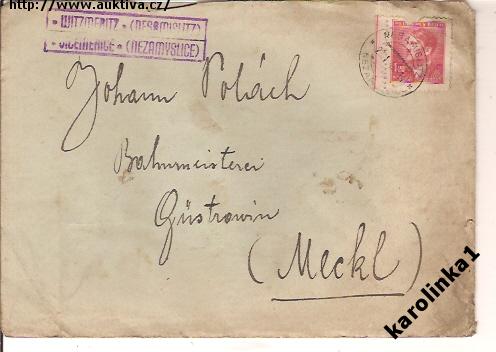 http://www.auktiva.cz/
* WITZMERITZ * (NESAMISLITZ)
* VICEMĚŘICE * (NEZAMYSLICE)
Johann Polách
Bahnmeisterei
Güstrowin
(Meckl)
karolinka1